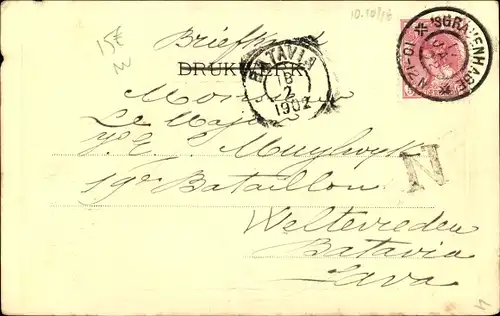 15€
10.10/18
Briefkaart
DRUKWERK
BATAVIA
18
2
1902
'SGRAVENHAGE
10-12 N
Monsieur
Le Major
E. Muylwyk
19e Bataillon
N
Weltevreden
Batavia
Java